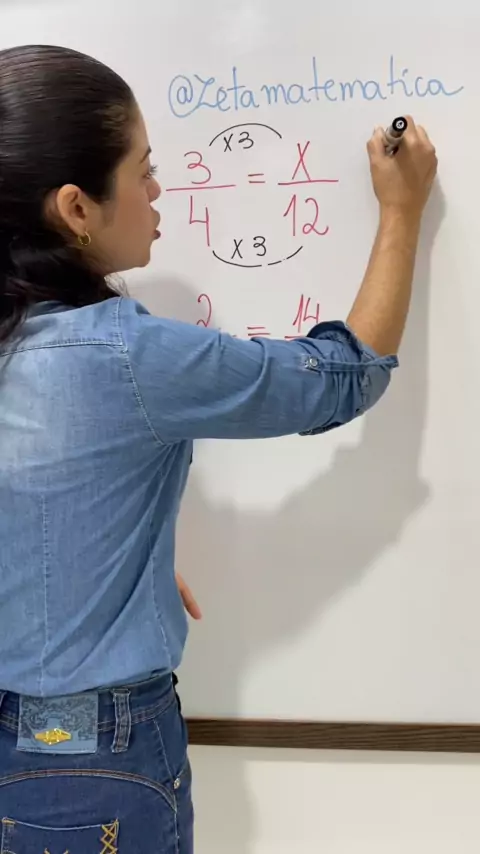 @Zetamatematica
x3
3 = X
4 12
x3
2 = 14